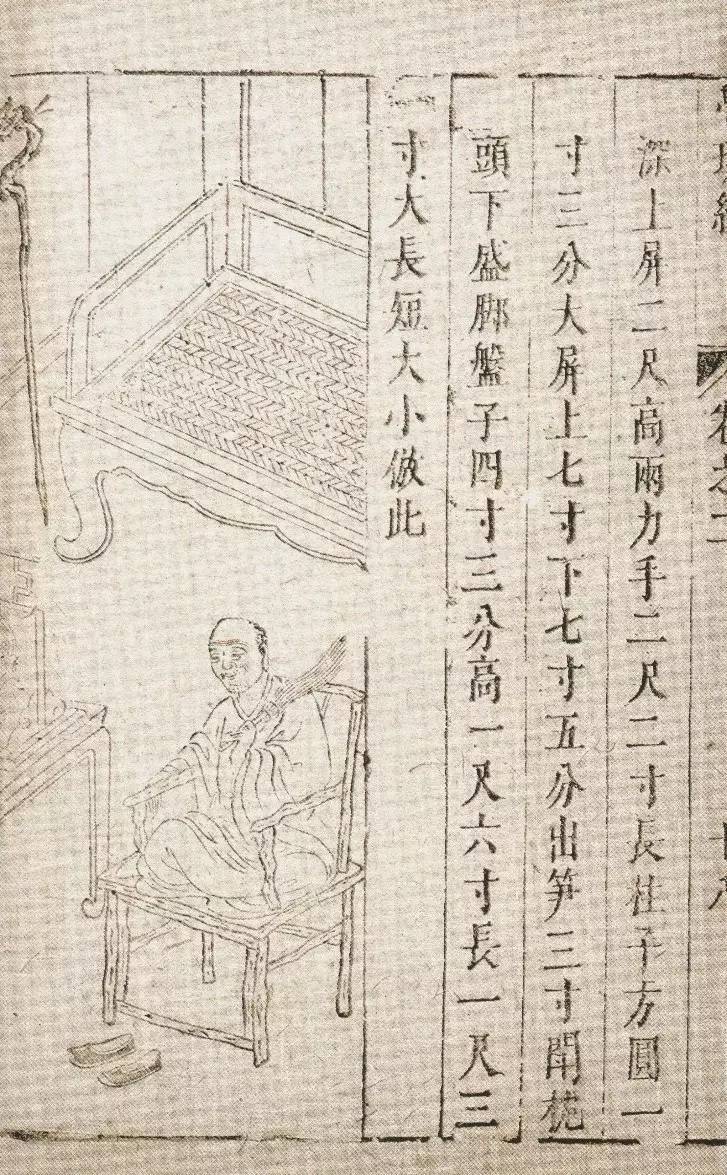 深上屏二尺高兩力手二尺二寸長柱子方圓一
寸三分大屏上七寸下七寸五分出笋三寸開枕
頭下盛脚盤子四寸三分高一尺六寸長一尺三
寸大長短大小倣此